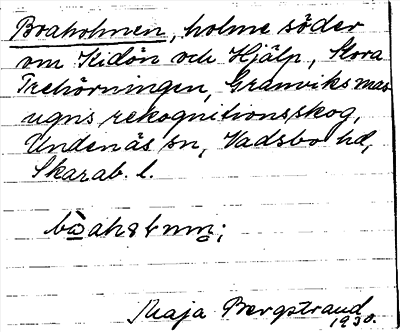 Braholmen, holme söder
om Kidön och Hjälp, Stora
Trehörningen, Granviks mas
ugns rekognitionsskog,
Undenäs sn, Vadsbo hd,
Skarab. l.
Maja Bergstrand
1930.